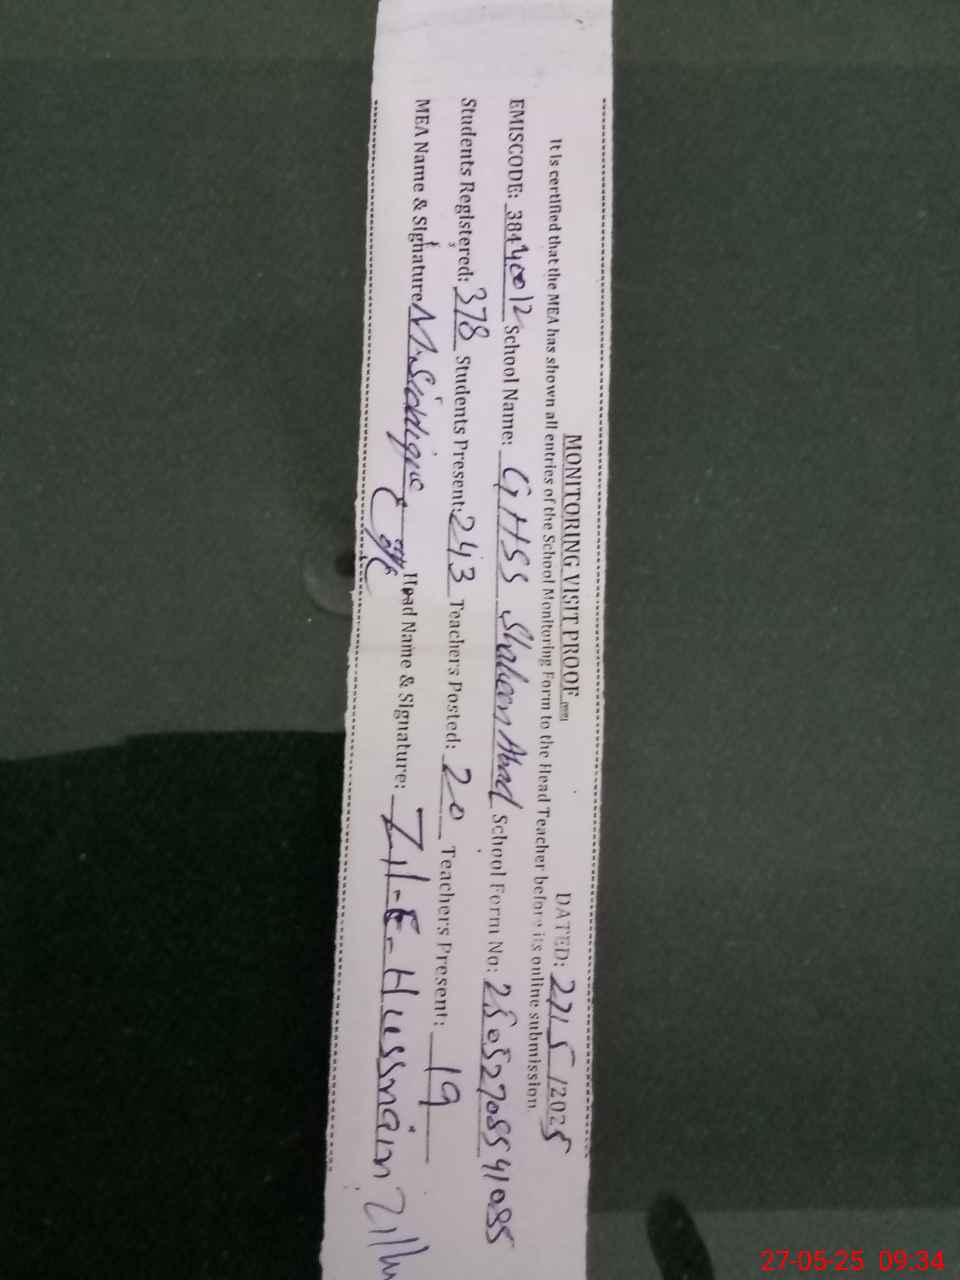 MONITORING VISIT PROOF DATED: 27/5/2025
It is certified that the MEA has shown all entries of the School Monitoring Form to the Head Teacher before its online submission.
EMISCODE: 38440012 School Name: GHSS Shaheen Abad School Form No:
Students Registered: 378 Students Present: 243 Teachers Posted: 20 Teachers Present: 19
MEA Name & Signature M. Siddique Head Name & Signature: Zil-E-Hussnain
27-05-25 09:34